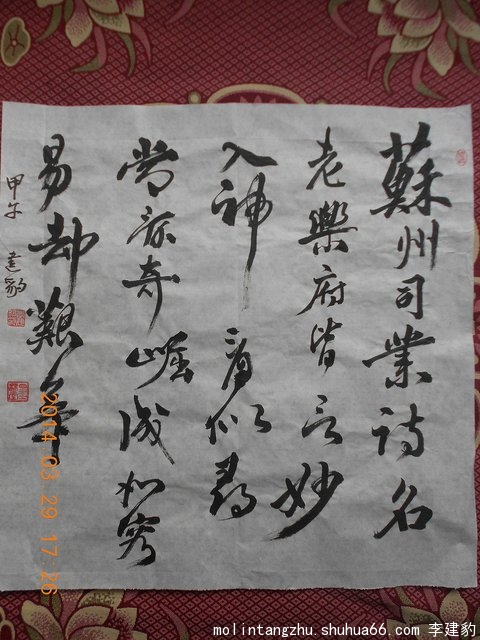 蘇州司業詩名
老樂府皆言妙
入神看似尋
常最奇崛成如容
易却艱辛
甲午 建豹
2014.03.29 17:26
molintangzhu.shuhua66.com 李建豹